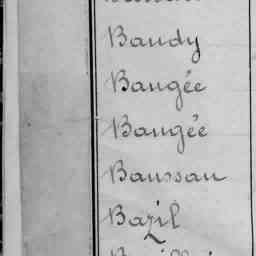 Baudy
Baugée
Baugée
Baussan
Bazil